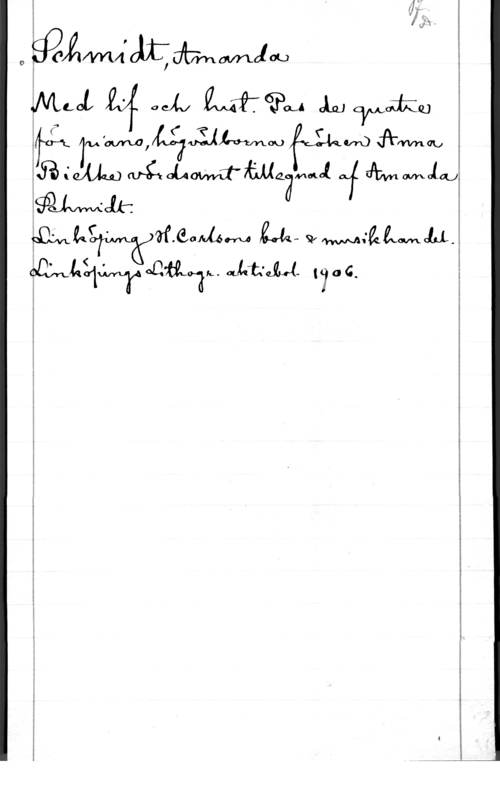 Schmidt, Amanda
Med lif och lust. Pas de quatre
för piano, högvälborna fröken Anna
Bielke vördsamt tillegnad af Amanda
Schmidt.
Linköping, H. Carlsons bok- & musikhandel.
Linköpings Lithogr. aktiebol. 1906.